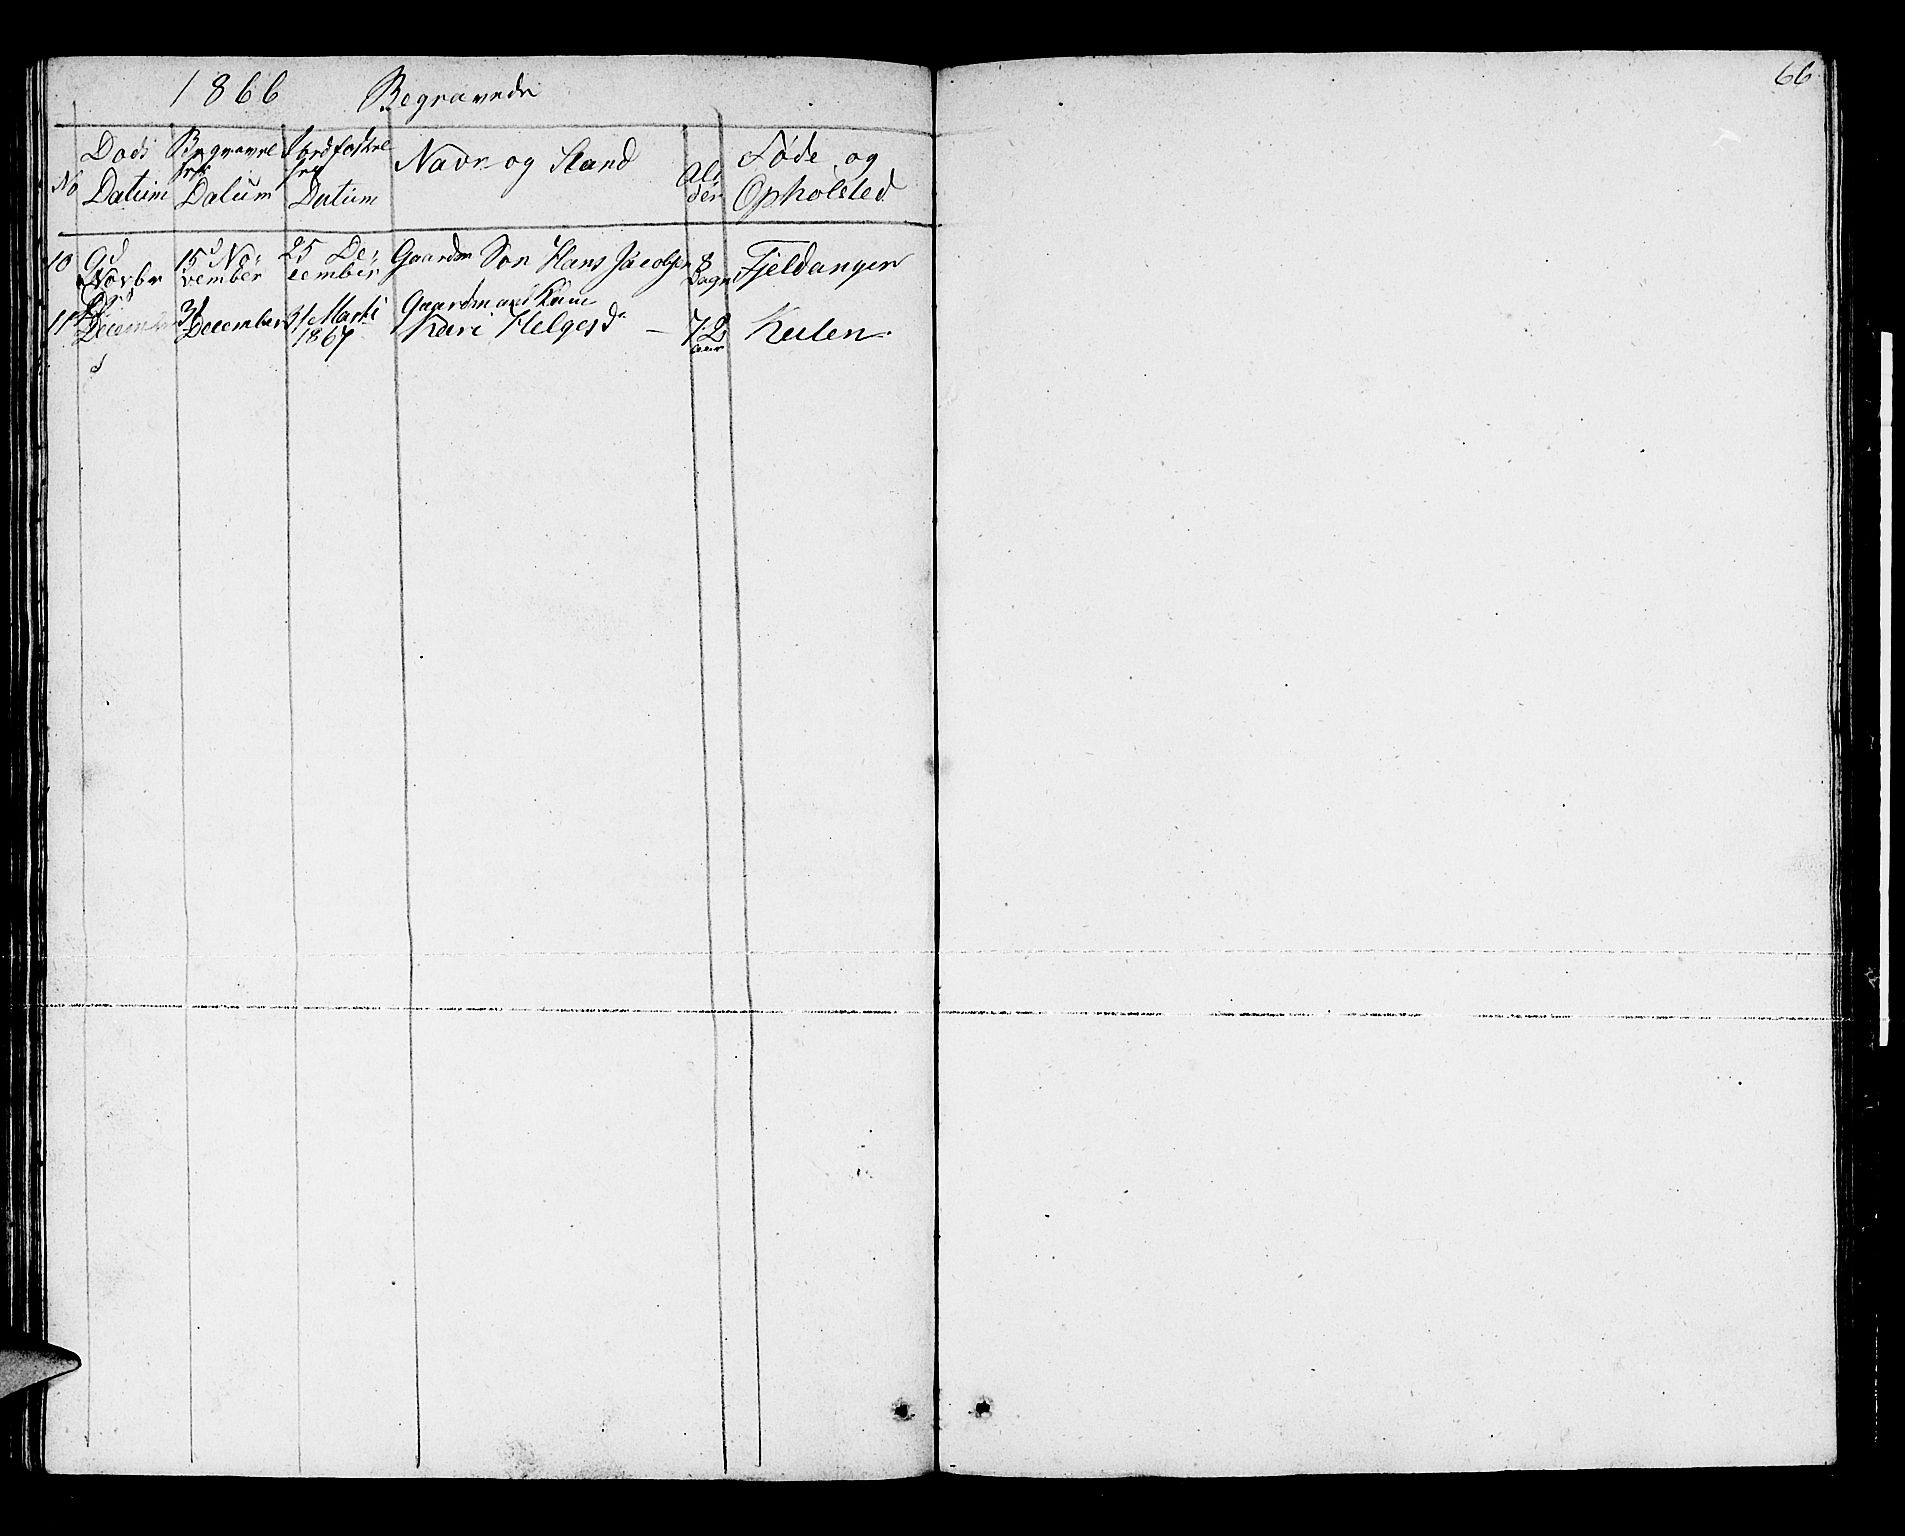 1866 Begravede
66
No Døds Datum Begravelsens Datum Jordfæstelsens Datum Navn og Stand Alder Føde og Opholsted
10 9d Novbr 15d November 25 December Gaardm Søn Hans Jacobsen 8 Dage Fjeldanger
11 December 31 December 31 Marti 1867 Gaardmand Kone Kari Helgesdr — 72 aar Keilen